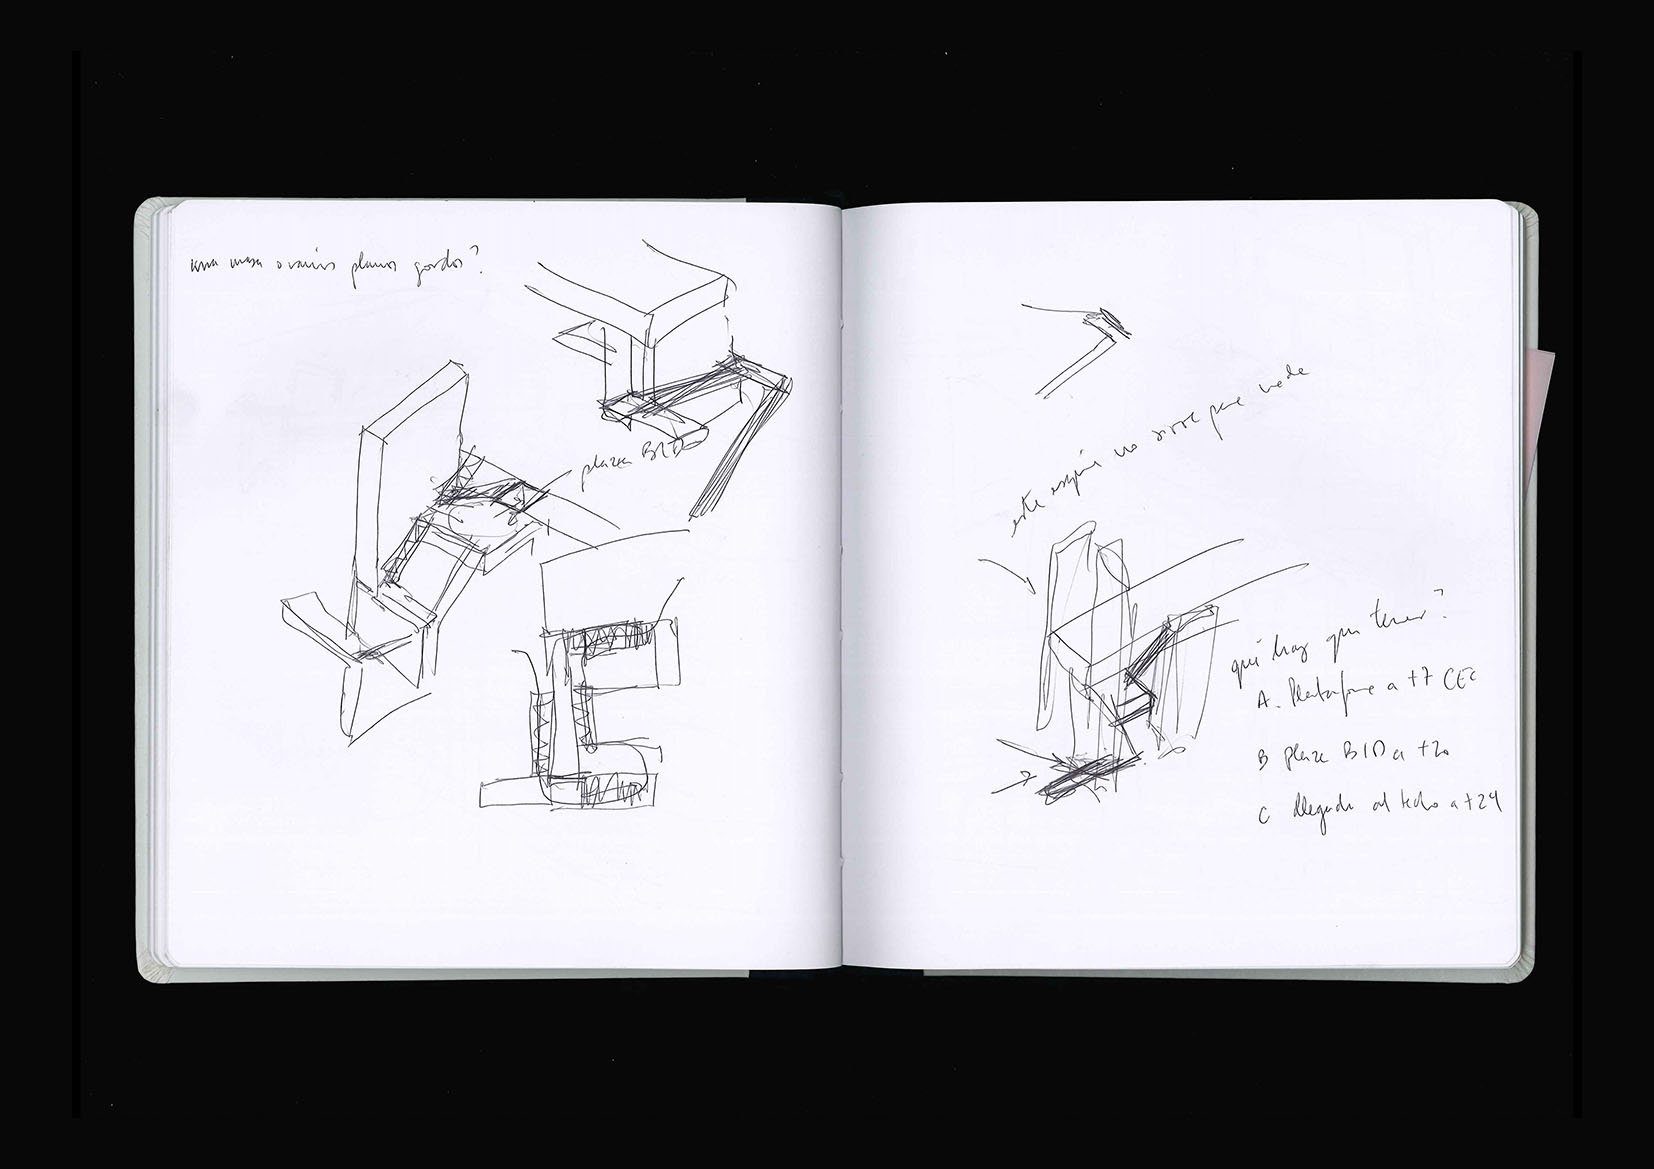 una masa o varios planos gordos?
plaza BID
este esquin no sirve para nada
qué hay que tener?
A. Plataforma a +7 CEC
B plaza BID a +20
C llegada al techo a +24